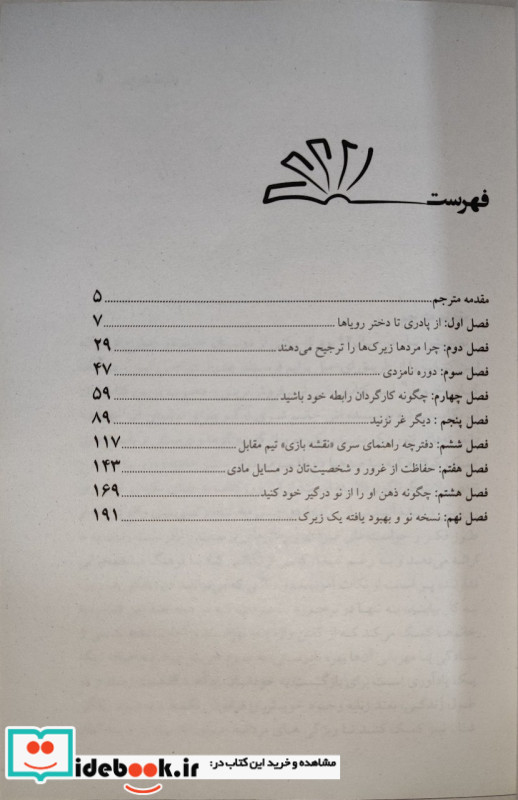 فهرست
مقدمه مترجم ۵
فصل اول: از پادری تا دختر رویاها ۷
فصل دوم: چرا مردها زیرک‌ها را ترجیح می‌دهند ۲۹
فصل سوم: دوره نامزدی ۴۷
فصل چهارم: چگونه کارگردان رابطه خود باشید ۵۹
فصل پنجم : دیگر غر نزنید ۸۹
فصل ششم: دفترچه راهنمای سری «نقشه بازی» تیم مقابل ۱۱۷
فصل هفتم: حفاظت از غرور و شخصیت‌تان در مسایل مادی ۱۴۳
فصل هشتم: چگونه ذهن او را از نو درگیر خود کنید ۱۶۹
فصل نهم: نسخه نو و بهبود یافته یک زیرک ۱۹۱
مشاهده و خرید این کتاب در:
idebook.ir